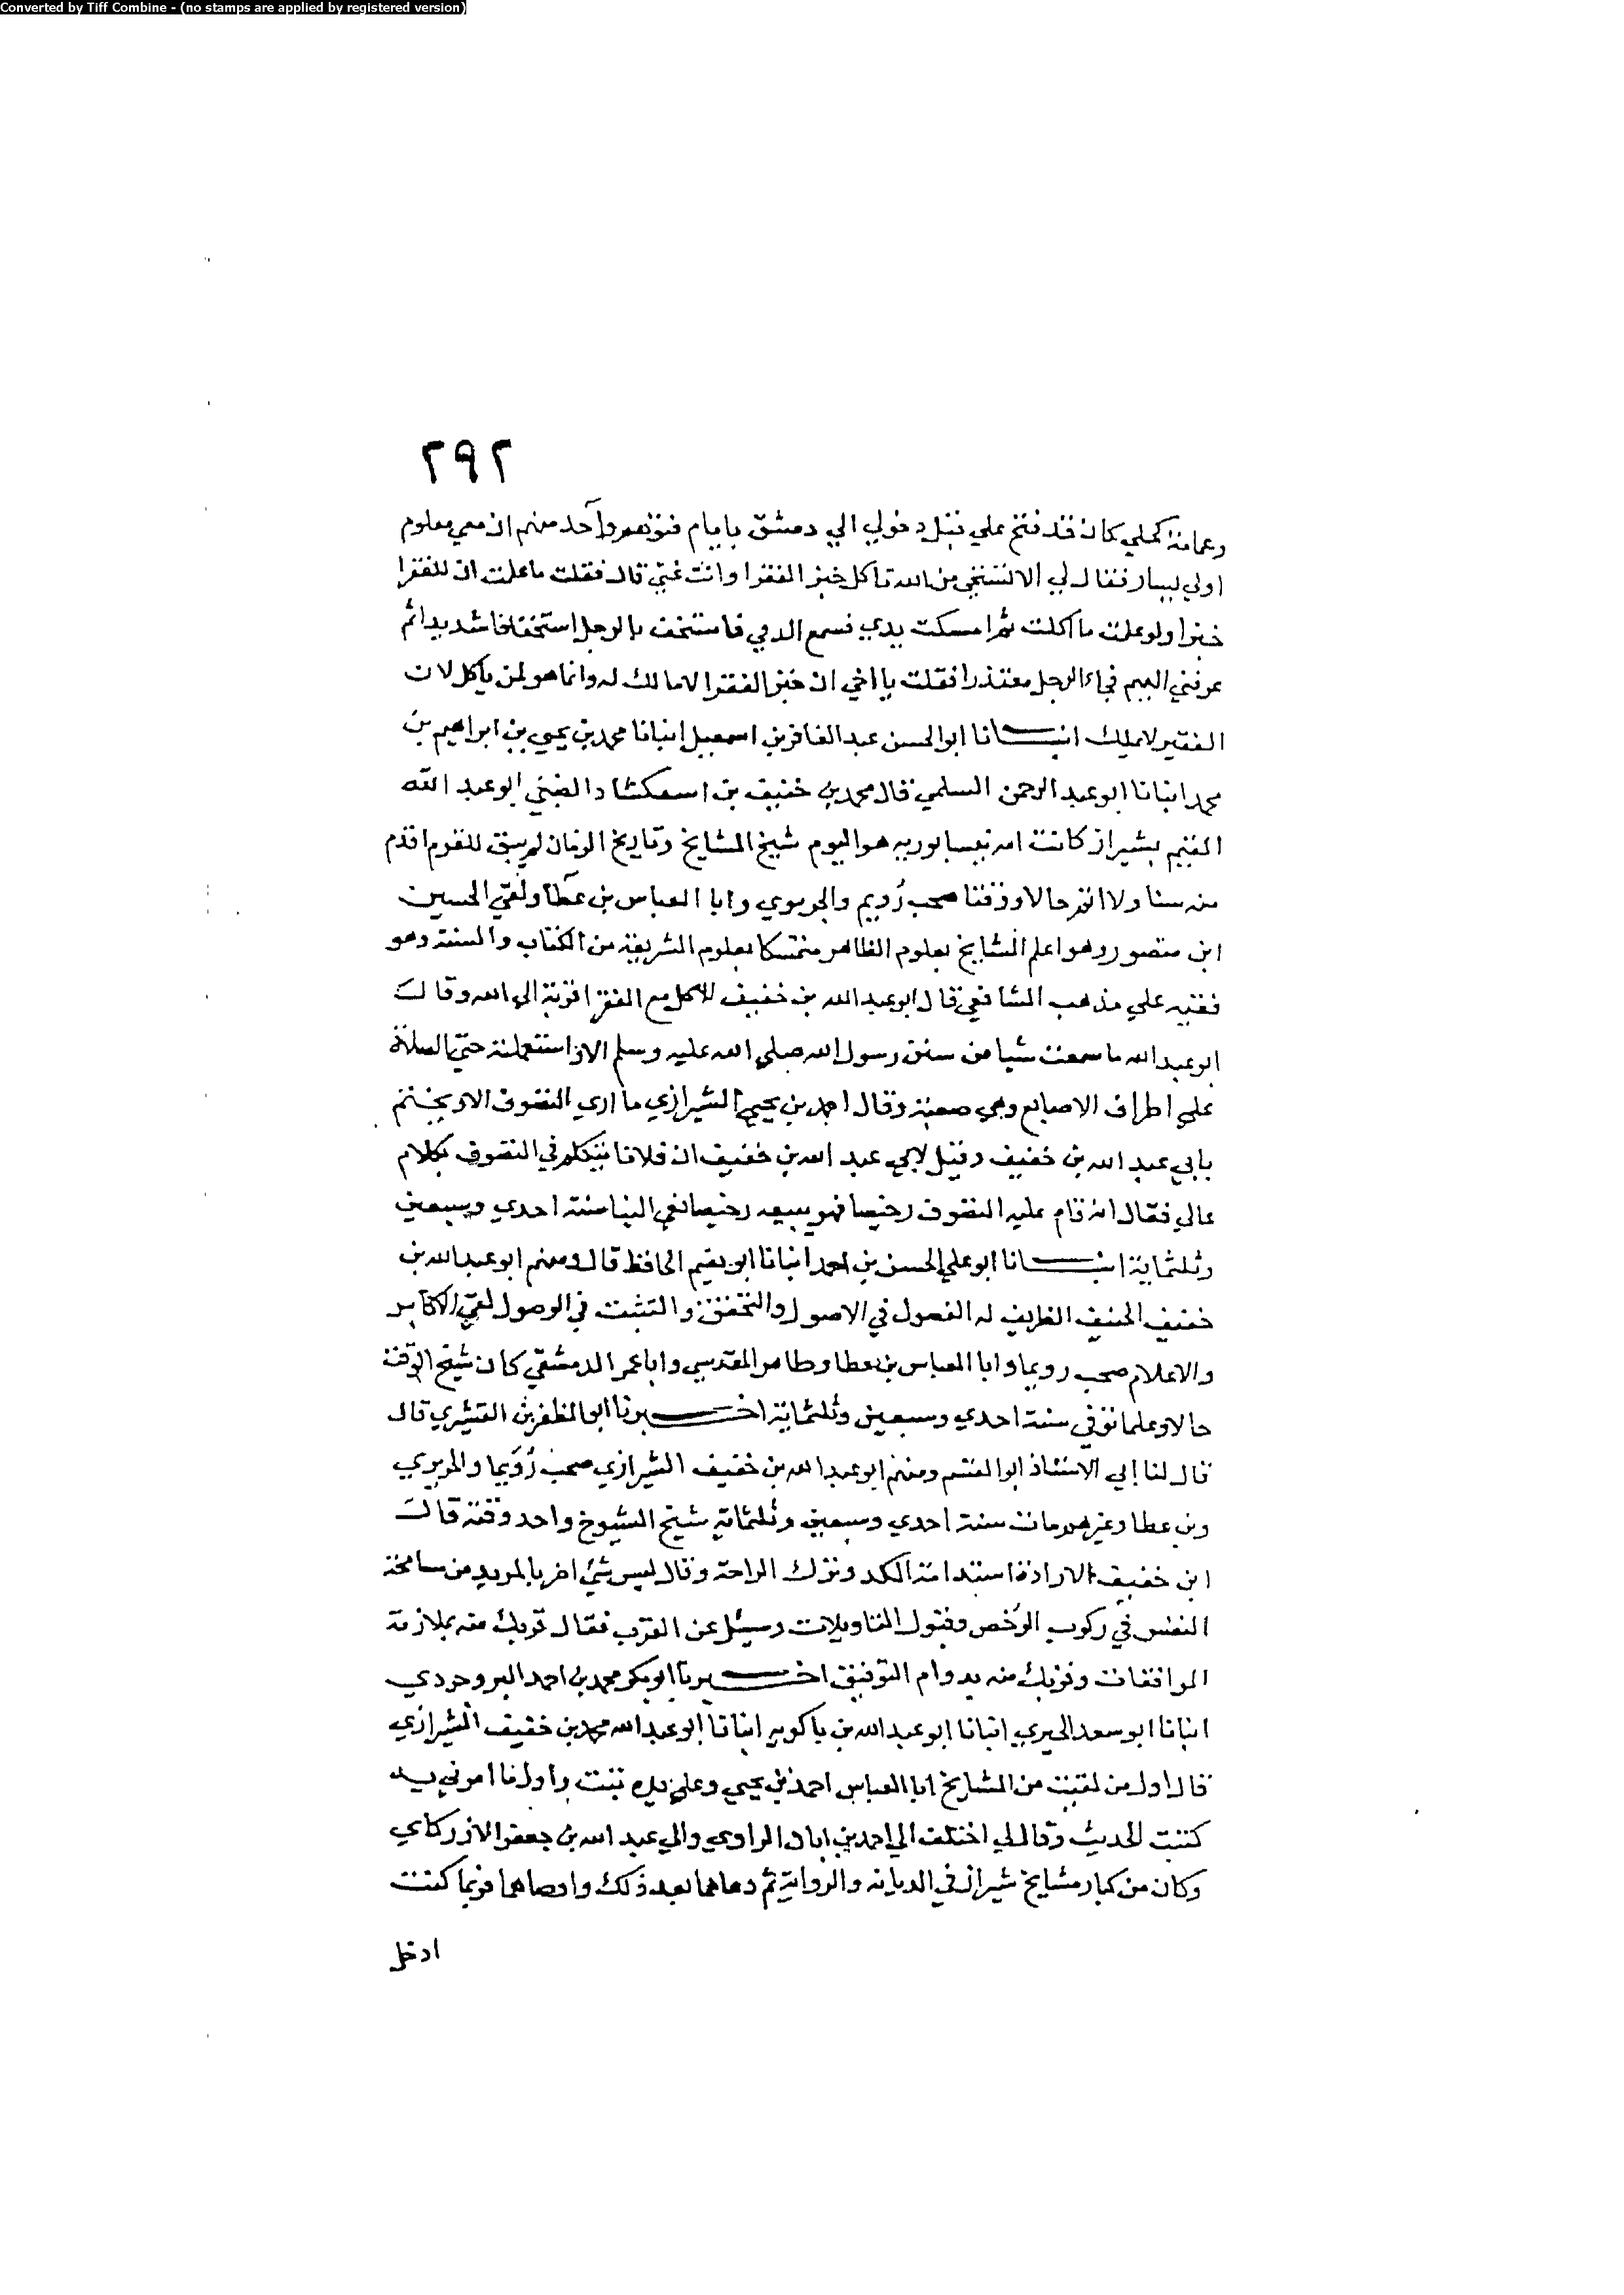 Converted by Tiff Combine - (no stamps are applied by registered version)
٢٩٢
وعمامة كحلي كان قد فتح علي قبل دخولي الي دمشق بايام فتوهم واحد منهم ان معي معلوم
اولي يسار فقال لي الا تستحي من الله تاكل خبز الفقرا وانت غني قال فقلت ما علمت ان للفقرا
خبزا ولو علمت ما اكلت ثم امسكت يدي فسمع الدقي فاستخف بالرجل استخفافا شديدا ثم
عرفني اليهم فجاء الرجل معتذرا فقلت يا اخي ان خبز الفقرا لا مالك له وانما هو لمن ياكل لان
الفقير لا يملك انبـــانا ابو الحسن عبد الغافر بن اسمعيل انبانا محمد بن يحيي بن ابراهيم بن
محمد انبانا ابو عبد الرحمن السلمي قال محمد بن خفيف بن اسكشاد الضبي ابو عبد الله
المقيم بشيراز كانت امه نيسابوريه هو اليوم شيخ المشايخ وتاريخ الزمان لم يبق للقوم اقدم
منه سنا ولا اتم حالا ووقتا صحب رُويم والجريري وابا العباس بن عطا ولقي الحسين
ابن منصور وهو اعلم المشايخ بعلوم الظاهر متمسكا بعلوم الشريعة من الكتاب والسنة وهو
فقيه علي مذهب الشافعي قال ابو عبد الله بن خفيف الاكل مع الفقرا قربة الي الله وقال
ابو عبد الله ما سمعت شيا من سنن رسول الله صلي الله عليه وسلم الا واستعملته حتي الصلاة
علي اطراف الاصابع وهي صعبة وقال احمد بن يحيي الشيرازي ما اري التصوف الا ويختم
بابي عبد الله بن خفيف وقيل لابي عبد الله بن خفيف ان فلانا يتكلم في التصوف بكلام
عالي فقال انه قام عليه التصوف رخيصا فهو يبيعه رخيصا نعي الينا سنة احدي وسبعين
وثلثماية انبـــانا ابو علي الحسن بن احمد انبانا ابو نعيم الحافظ قال ومنهم ابو عبد الله بن
خفيف الحنيف الظريف له الفصول في الاصول والتحقق والتثبت في الوصول لقي الاكابر
والاعلام صحب رويما وابا العباس بن عطا وطاهر المقدسي وابا عمر الدمشقي كان شيخ الوقت
حالا وعلما توفي سنة احدي وسبعين وثلثماية اخـــبرنا ابو المظفر بن القشيري قال
قال لنا ابي الاستاذ ابو القسم ومنهم ابو عبد الله بن خفيف الشيرازي صحب رُوَيما والجريري
وبن عطا وغيرهم مات سنة احدي وسبعين وثلثماية شيخ الشيوخ واحد وقته قال
ابن خفيف الارادة استدامة الكد وترك الراحة وقال ليس شيئ اضر بالمريد من مسامحة
النفس في ركوب الرُخص وقبول التاويلات وسيل عن القرب فقال قربك منه بملازمة
الموافقات وقربك منه بدوام التوفيق اخـــبرنا ابو بكر محمد بن احمد البروجردي
انبانا ابو سعد الحيري انبانا ابو عبد الله بن باكويه انبانا ابو عبد الله محمد بن خفيف الشيرازي
قال اول من لقيت من المشايخ ابا العباس احمد بن يحيي وعلي يده تبت واول ما امرني به
كتبت الحديث وقال لي اختلف الي احمد بن ابان الراوي والي عبد الله بن جعفر الازركاي
وكان من كبار مشايخ شيراز في الديانه والرواية ثم دعاهما بعد ذلك واوصاهما فربما كنت
ادخل